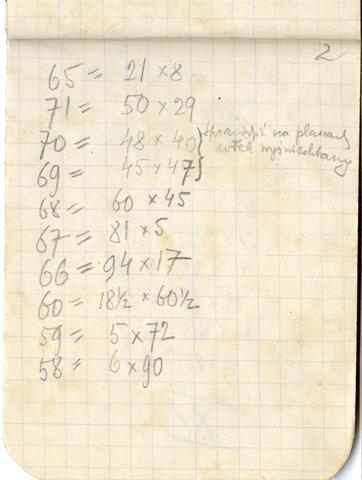 2
65 = 21 × 8
71 = 50 × 29
70 = 48 × 40
69 = 45 × 47
na planach
68 = 60 × 45
67 = 81 × 5
66 = 94 × 17
60 = 18½ × 60½
59 = 5 × 72
58 = 6 × 90